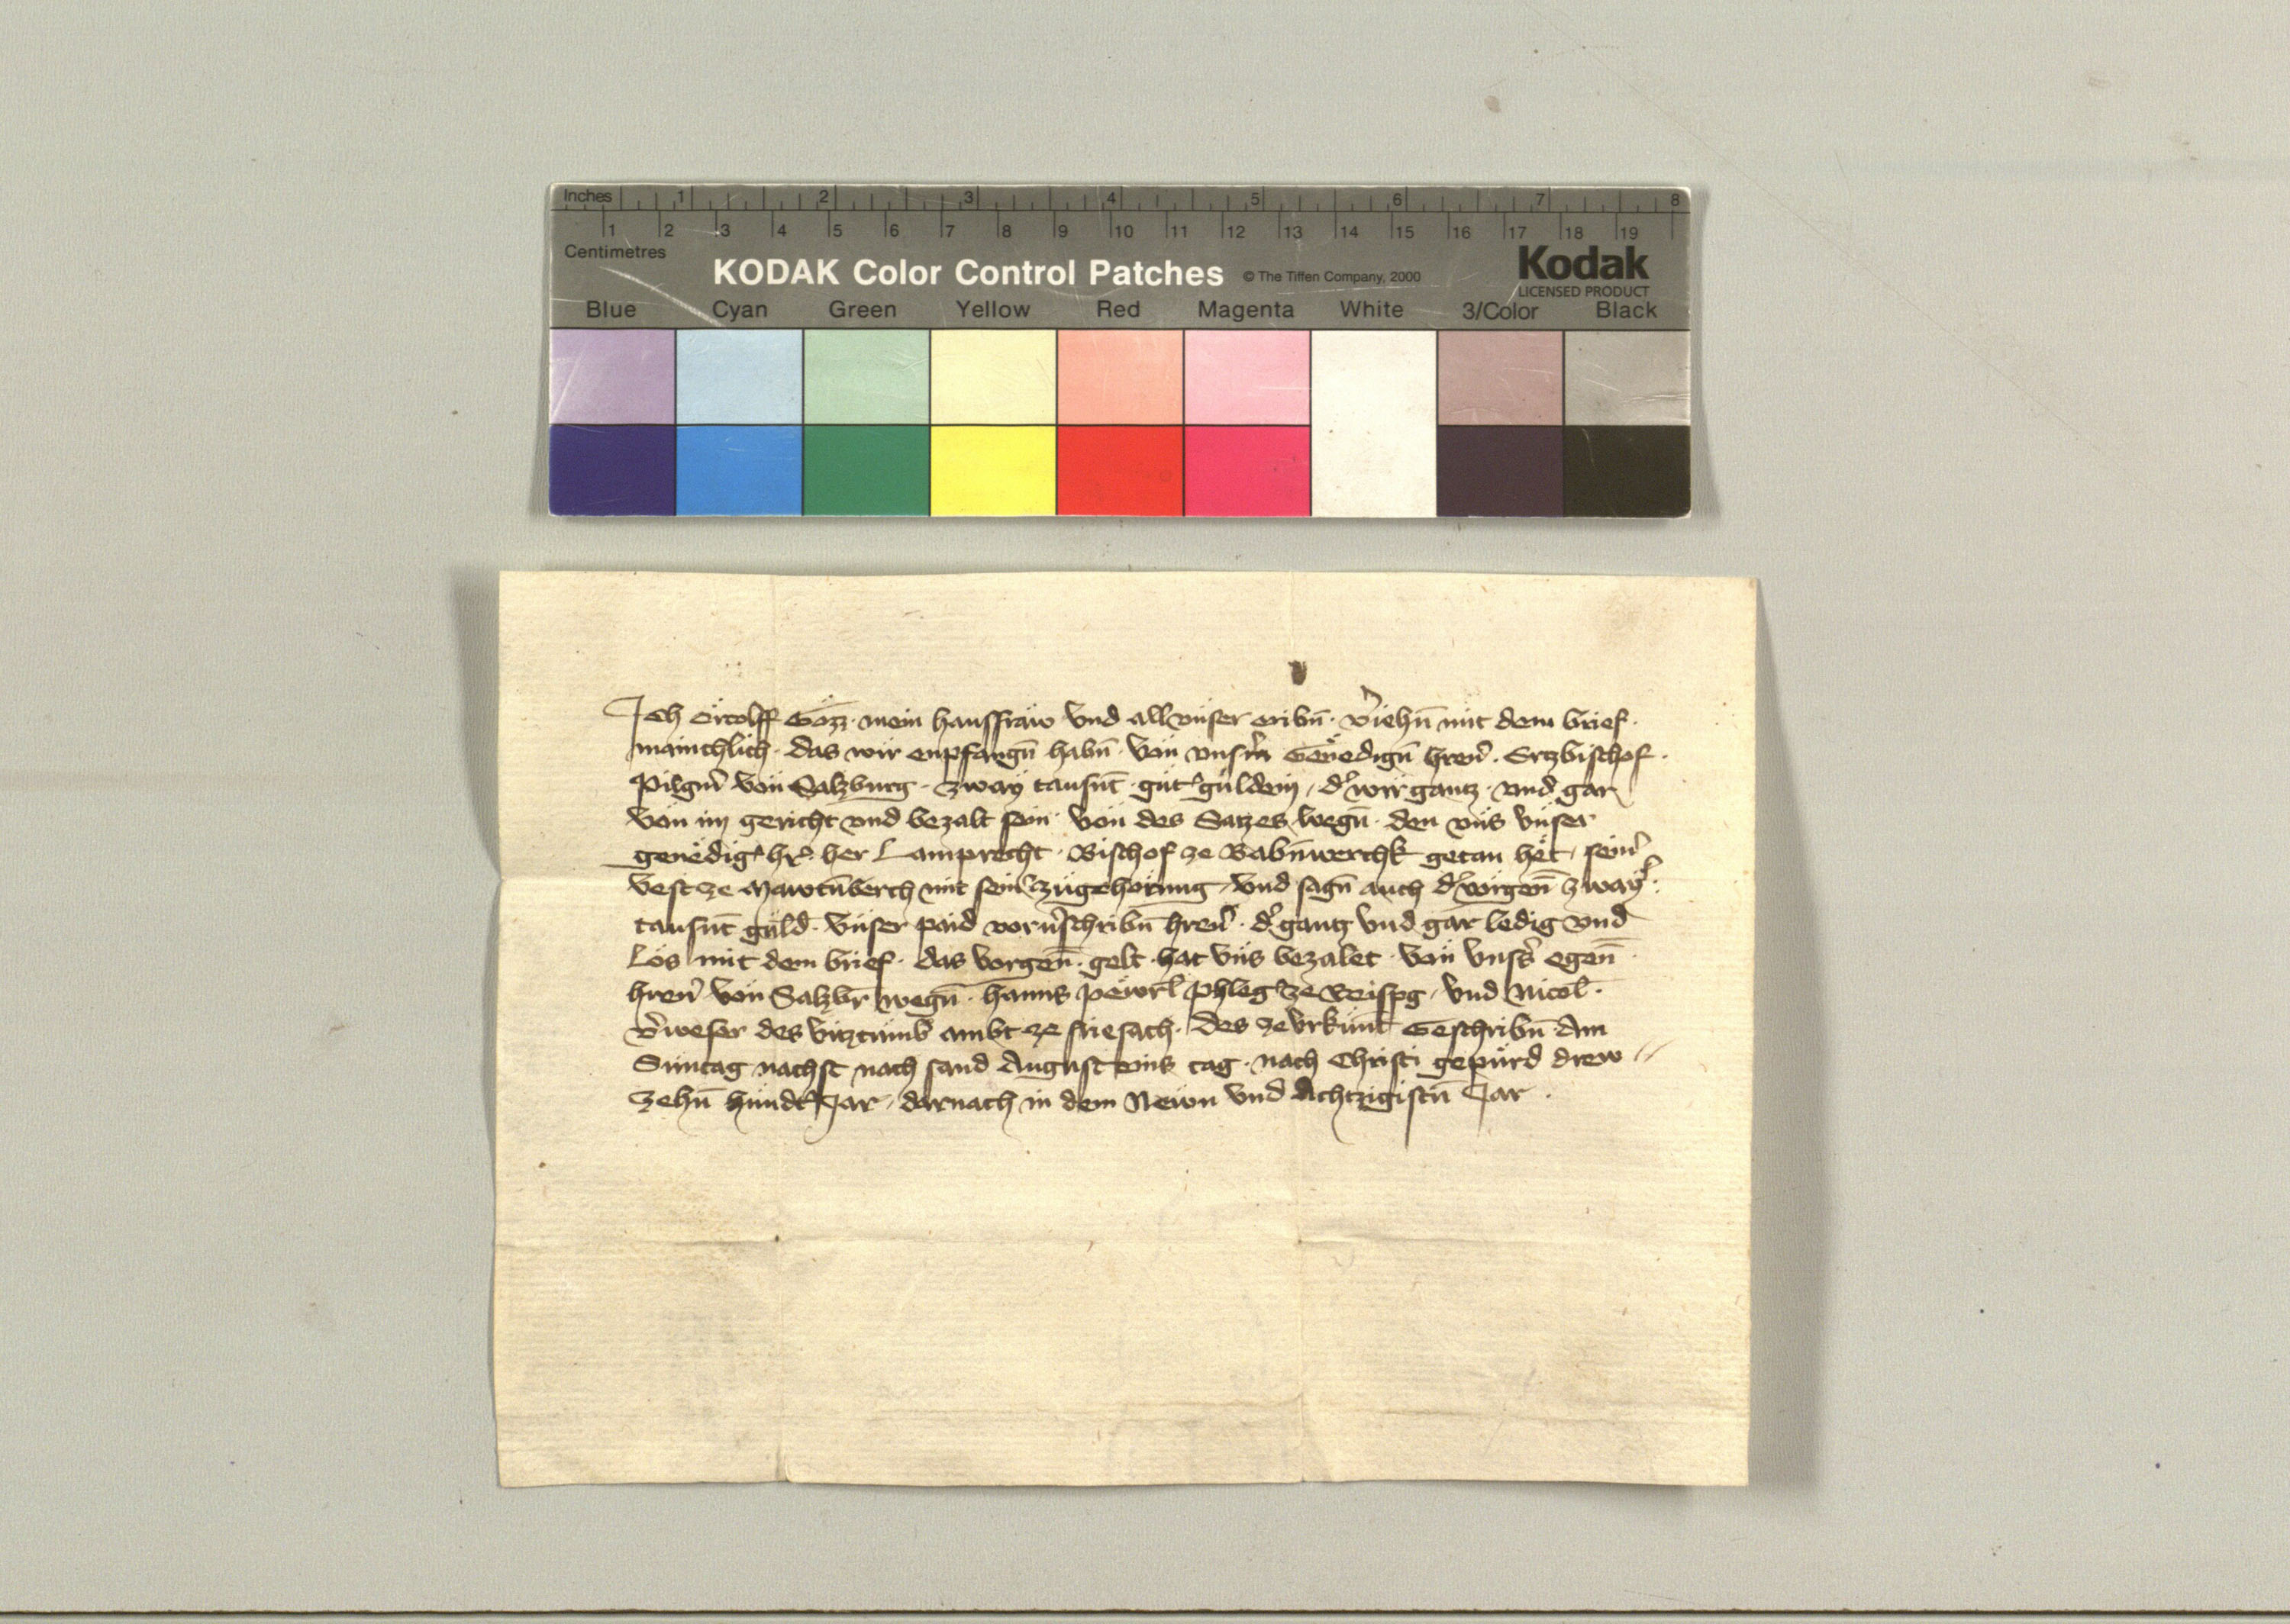 Inches 1 2 3 4 5 6 7 8
1 2 3 4 5 6 7 8 9 10 11 12 13 14 15 16 17 18 19
Centimetres
KODAK Color Control Patches © The Tiffen Company, 2000 Kodak
LICENSED PRODUCT
Blue Cyan Green Yellow Red Magenta White 3/Color Black
Ich Örtolff Gözz · mein hausfraẅ vnd all vnser eribn̄ · v̾iehn̄ mit dem brief ·
mainchlich · das wir enpfangn̄ habn̄ · von vnsm̾ Genedign̄ hren̾ · Ertzbischof ·
Pilgrī von Salzburg · zway tausnt̄ · gut̾ guldein / d̾ wir gantz · vnd gar
von im gericht vnd bezalt sein · von des Satzes wegn̄ · den vns vnser
genedig̾ hr̾ · her Lamprecht · Bischof ze Babn̄werchk getan het / sein̾
vest ze Mawtn̄berch mit sein̾ zugehorung / vnd sagn̄ auch d̾ vorgen̄ zway̾ ·
tausnt̄ guld̄ · vnser paid vorn̾schribn̄ hren̾ · d̾ gantz vnd gar ledig vnd
los mit dem brief · das vorgen̄ · gelt · hat vns bezalet · von vnss̾ egen̄ ·
hren̾ von Salzbr̄ wegn̄ · Hanns peẅrl phleg̾ ze Reispg / vnd Nicol̄ ·
v̾weser des vitztumb ambt ze friesach · des ze vrkunt̄ Geschribn̄ Am
Suntag nachst nach sand Augusteins tag · nach Christi gepurd drew
zehn̄ hundt̾ Jar / darnach in dem Newn vnd Achtzigistn̄ Jar ·